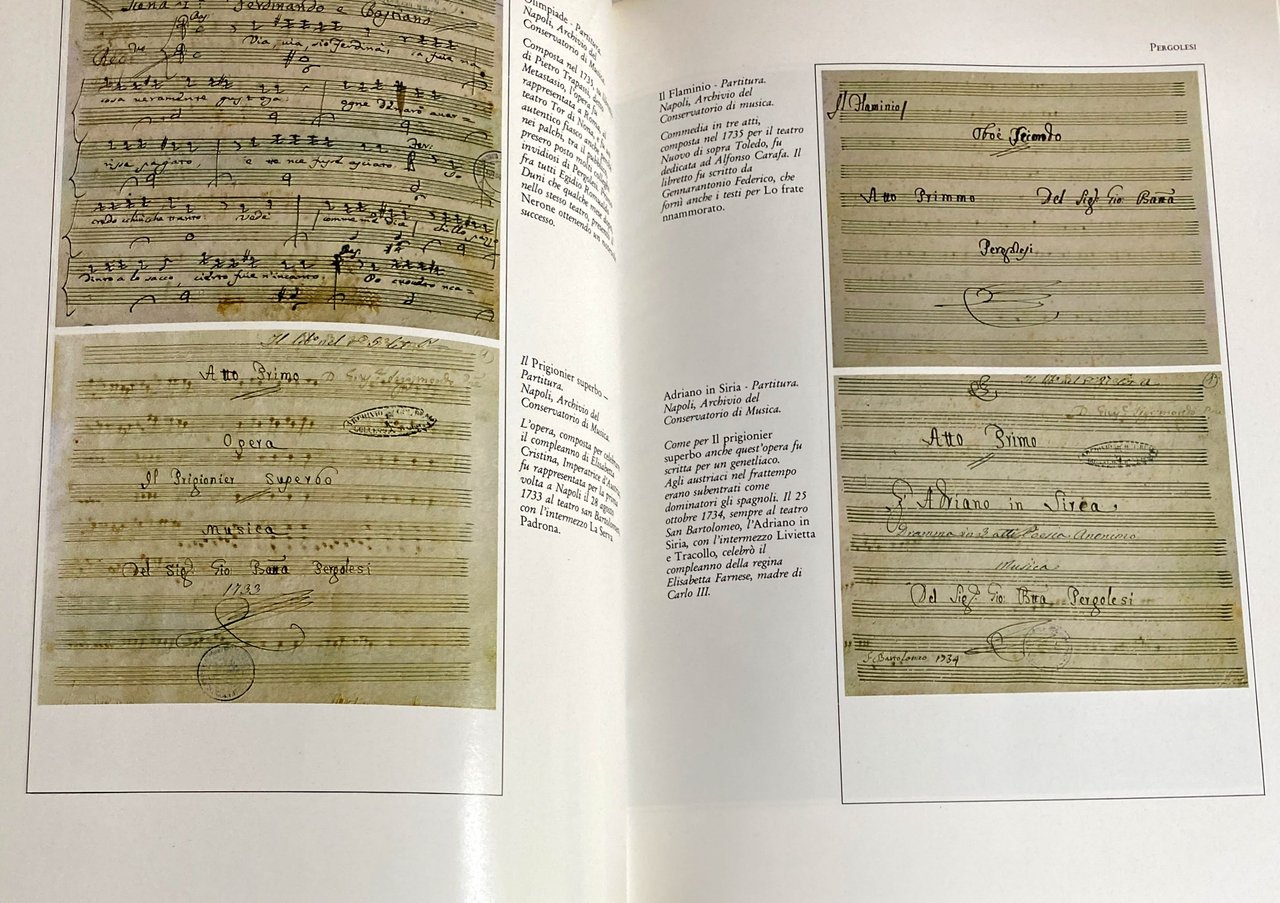 Scena I.ª Ferdinando e Bastiano
Via, via, sio Ferdinà,
cosa veramente
ogne denaro
e ve nce
vede
diaro a lo sacco,
Olimpiade - Partitura.
Napoli, Archivio del
Conservatorio di Musica.
Composta nel 1735, su
di Pietro Trapassi, detto
Metastasio, l'opera fu
rappresentata a Roma, al
teatro Tor di Nona,
autentico fiasco anche perché
nei palchi, tra il pubblico,
presero posto molti colleghi
invidiosi di Pergolesi, primo
fra tutti Egidio Romualdo
Duni che qualche mese dopo,
nello stesso teatro, presentò il
Nerone ottenendo un
successo.
Atto Primo
Opera
Il Prigionier Superbo
Musica
Del Sig.r Gio Batta Pergolesi
1733
Il Prigionier superbo –
Partitura.
Napoli, Archivio del
Conservatorio di Musica.
L'opera, composta per celebrare
il compleanno di Elisabetta
Cristina, Imperatrice d'Austria,
fu rappresentata per la prima
volta a Napoli il 28 agosto
1733 al teatro san Bartolomeo,
con l'intermezzo La Serva
Padrona.
PERGOLESI
Il Flaminio - Partitura.
Napoli, Archivio del
Conservatorio di musica.
Commedia in tre atti,
composta nel 1735 per il teatro
Nuovo di sopra Toledo, fu
dedicata ad Alfonso Carafa. Il
libretto fu scritto da
Gennarantonio Federico, che
fornì anche i testi per Lo frate
nnammorato.
Il Flaminio
Oboè Secondo
Atto Primmo Del Sig.r Gio: Batta
Pergolesi
Adriano in Siria - Partitura.
Napoli, Archivio del
Conservatorio di Musica.
Come per Il prigionier
superbo anche quest'opera fu
scritta per un genetliaco.
Agli austriaci nel frattempo
erano subentrati come
dominatori gli spagnoli. Il 25
ottobre 1734, sempre al teatro
San Bartolomeo, l'Adriano in
Siria, con l'intermezzo Livietta
e Tracollo, celebrò il
compleanno della regina
Elisabetta Farnese, madre di
Carlo III.
Atto Primo
L'Adriano in Sirea
Dramma in 3 atti Poesia Anonimo
Musica
Del Sig.r Gio: Btta Pergolesi
S. Bartolomeo 1734